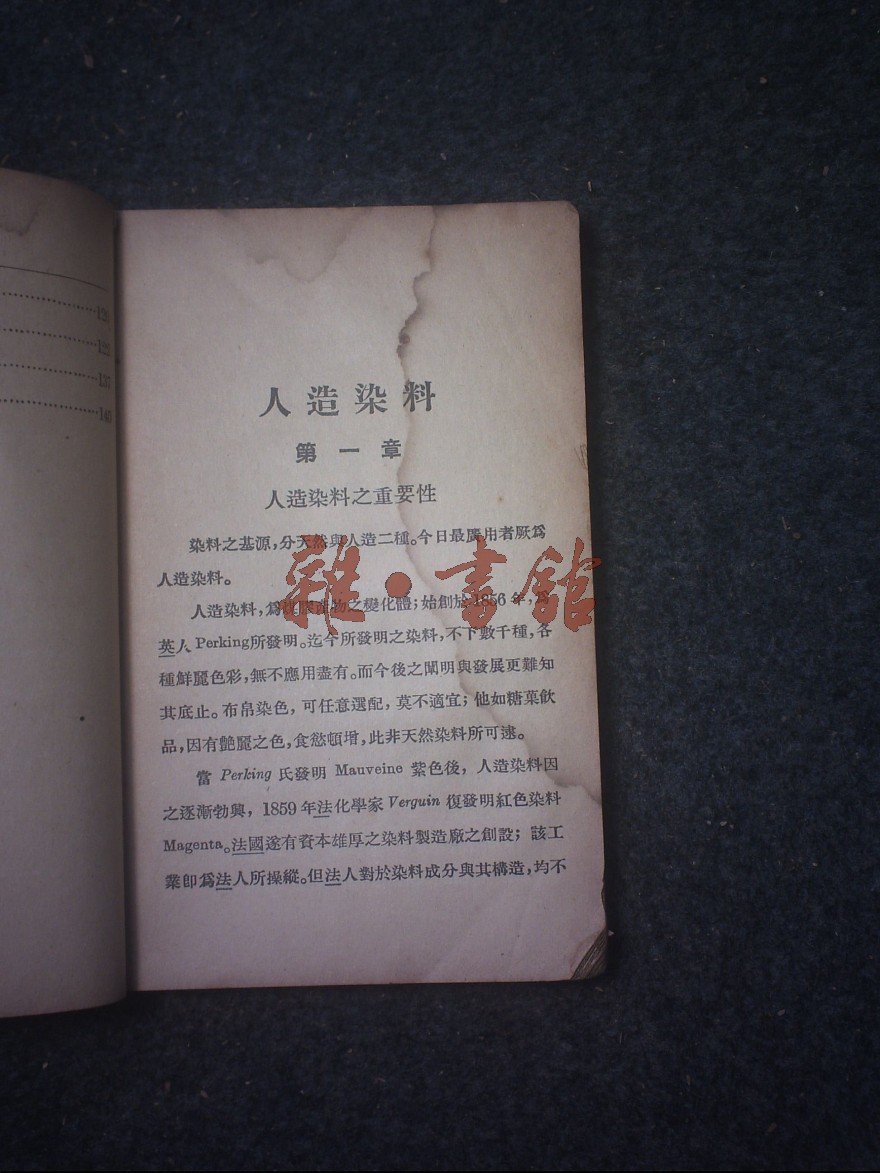 120
122
131
140
人造染料
第一章
人造染料之重要性
染料之基源,分天然與人造二種。今日最廣用者厥爲
人造染料。
人造染料,爲煤膠產物之變化體;始創於1856年,爲
英人Perking所發明。迄今所發明之染料,不下數千種,各
種鮮麗色彩,無不應用盡有。而今後之闡明與發展更難知
其底止。布帛染色,可任意選配,莫不適宜;他如糖菓飲
品,因有艷麗之色,食慾頓增,此非天然染料所可逮。
當 Perking 氏發明 Mauveine 紫色後,人造染料因
之逐漸勃興,1859年法化學家 Verguin 復發明紅色染料
Magenta。法國遂有資本雄厚之染料製造廠之創設;該工
業卽爲法人所操縱。但法人對於染料成分與其構造,均不
雜·書館